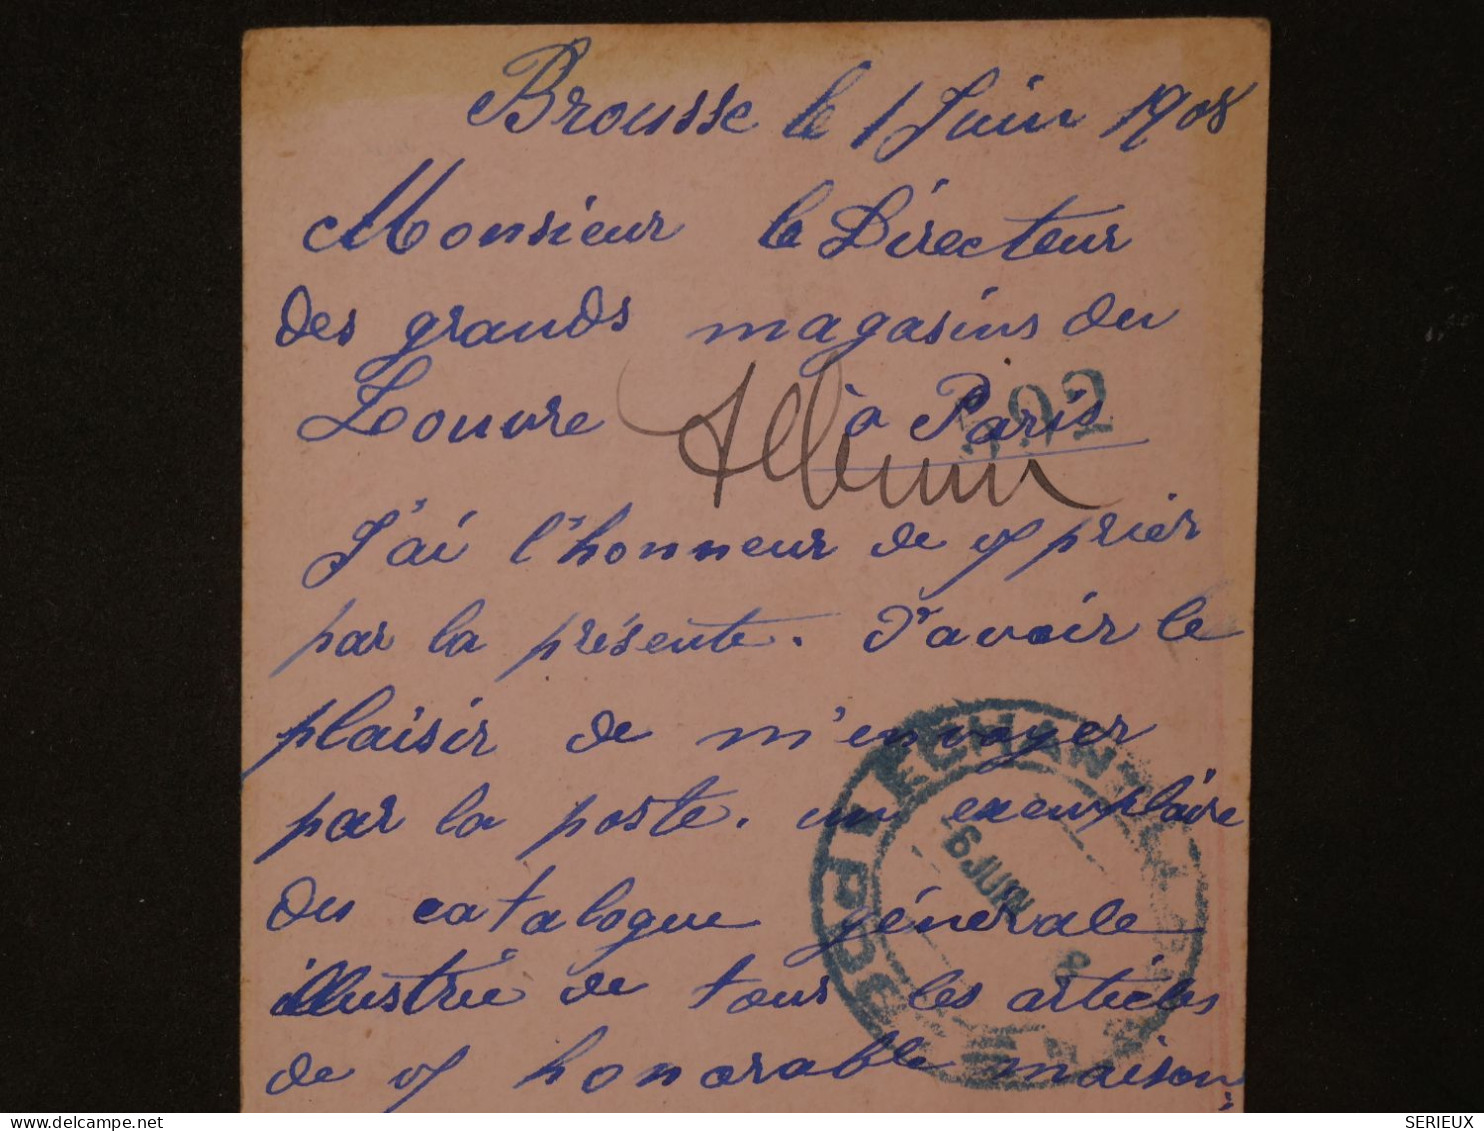 Brousse le 1 Juin 1908
Monsieur le Directeur
des grands magasins du
Louvre à Paris
J'ai l'honneur de vs prier
par la présente. d'avoir le
plaisir de m'envoyer
par la poste. un exemplaire
du catalogue générale
illustrée de tous les articles
de vs honorable maison;
6 JUIN
SERIEUX